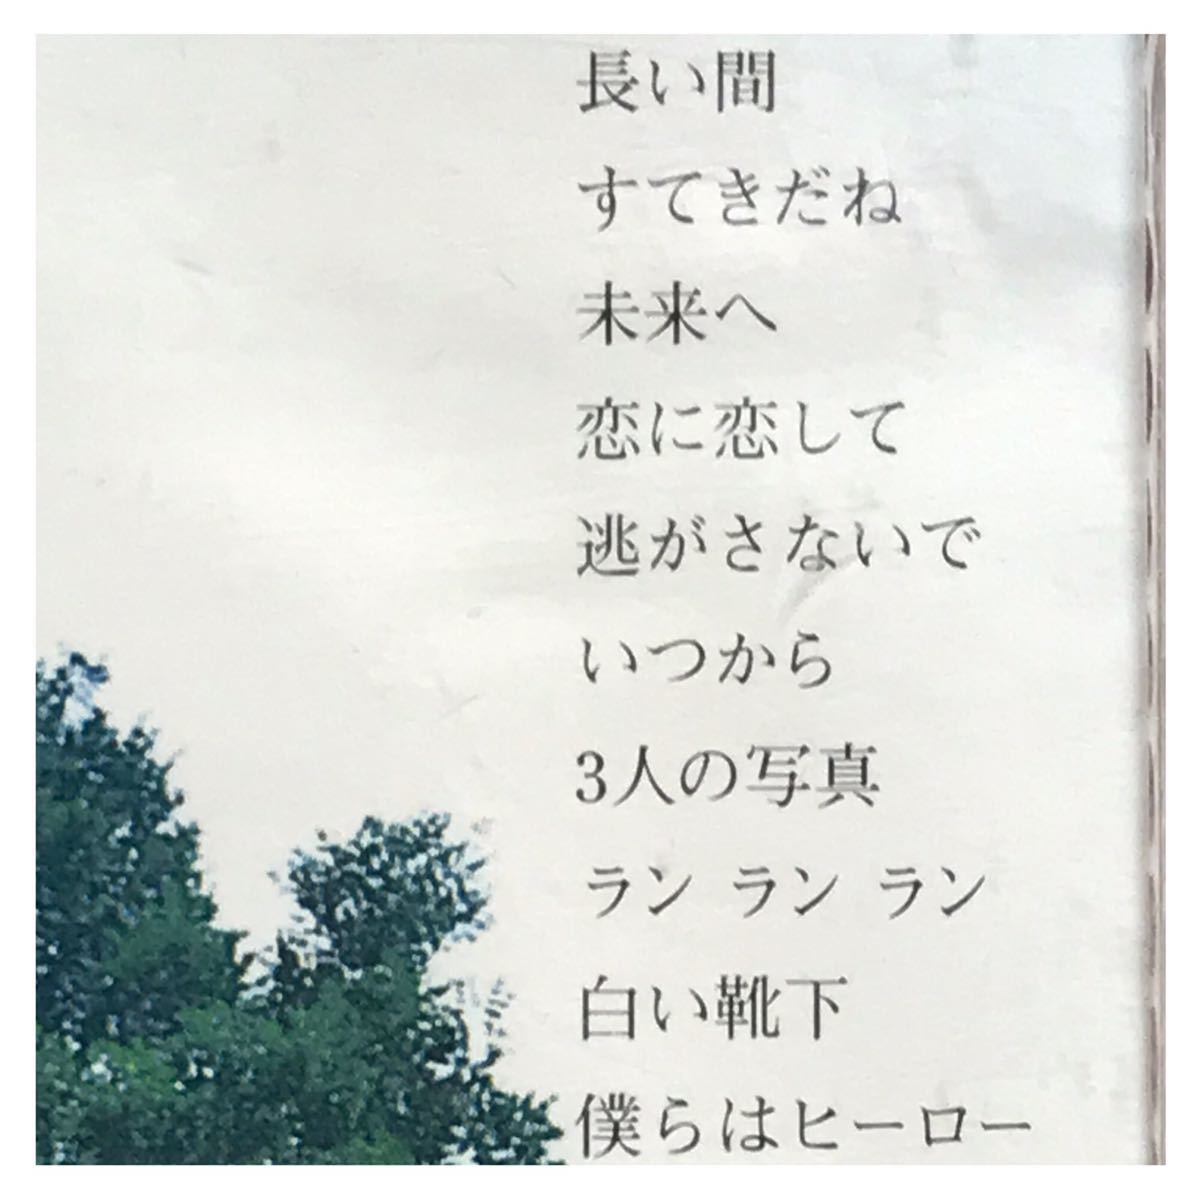 長い間
すてきだね
未来へ
恋に恋して
逃がさないで
いつから
3人の写真
ラン ラン ラン
白い靴下
僕らはヒーロー